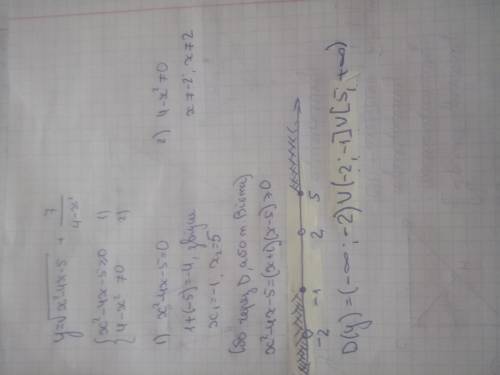 y=√(x²-4x-5) + 7/(4-x²)
{ x²-4x-5≥0 1)
{ 4-x² ≠0 2)
1) x²-4x-5=0
1+(-5)=-4, звідки
x₁=-1, x₂=5
(або через D, або т Вієта)
x²-4x-5=(x+1)(x-5)≥0
2) 4-x²≠0
x≠-2; x≠2
-2 -1 2 5
D(y)=(-∞;-2)∪(-2;-1]∪[5;+∞)